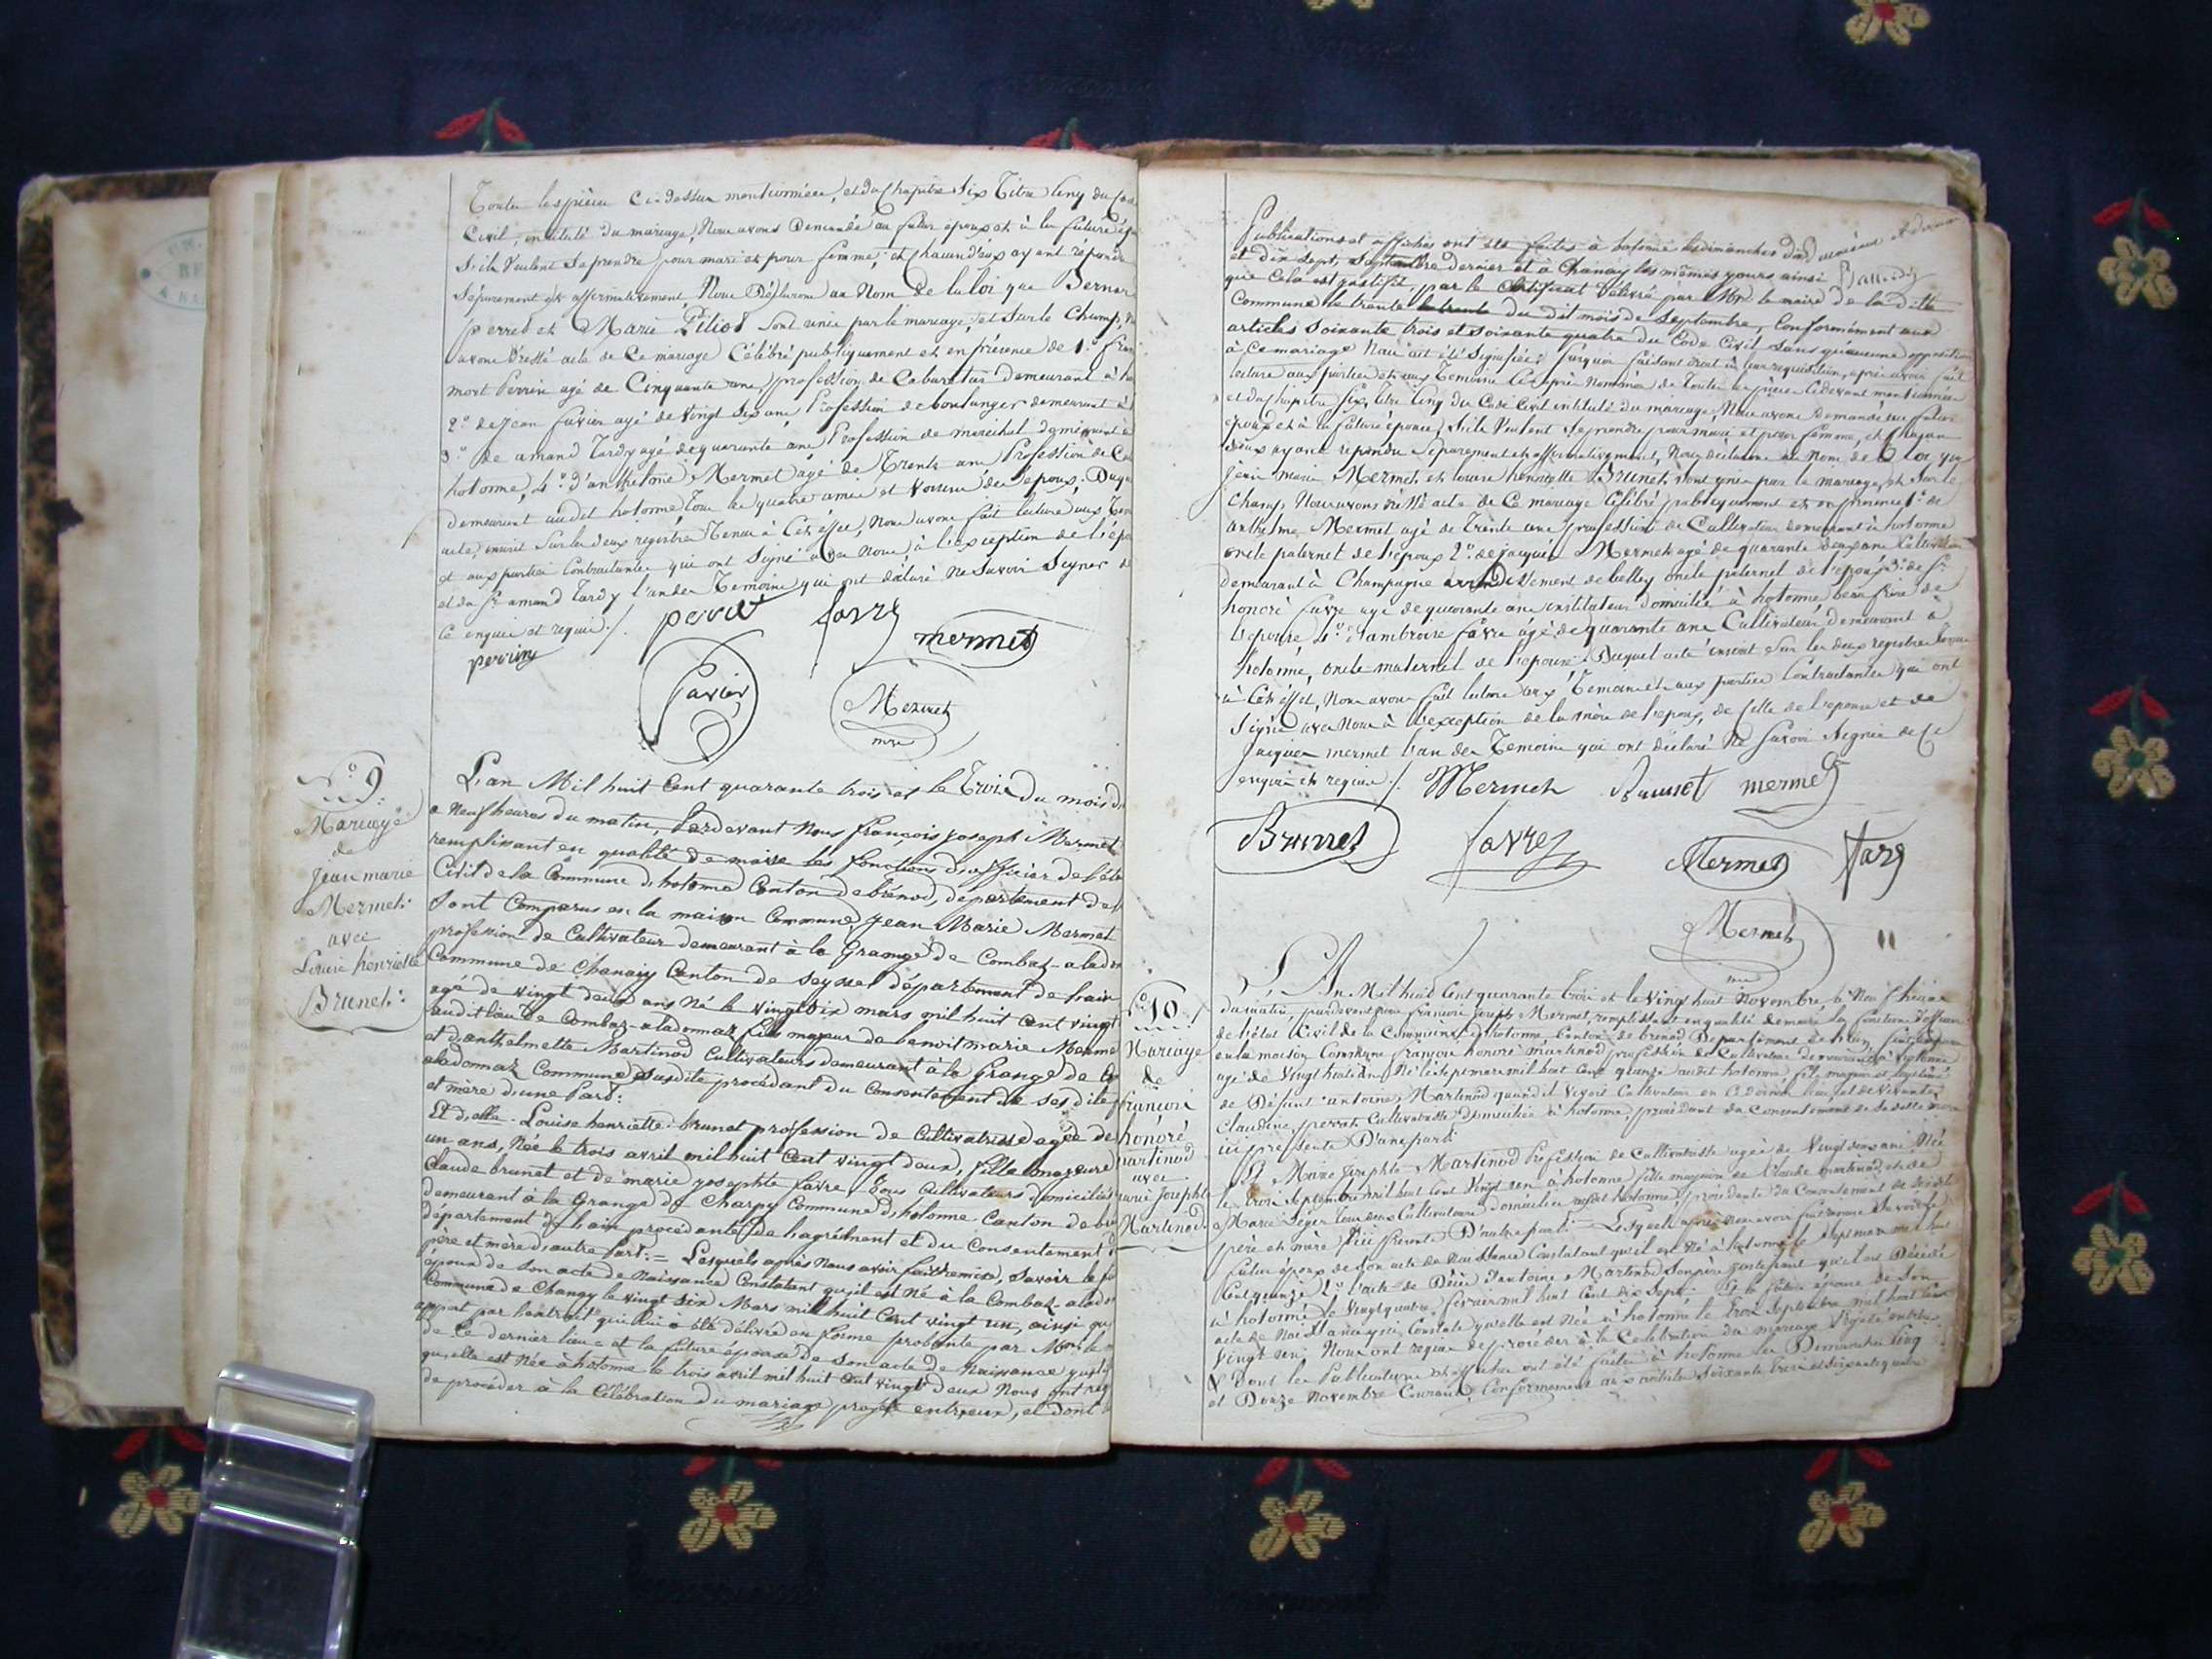 Toutes les pièces ci-dessus mentionnées, et du Chapitre Six Titre Cinq du
Civil, intitulé du mariage, Nous avons Demandé au futur époux et à la future
S'ils Veulent se prendre pour mari et pour femme, et chacun d'eux ayant répondu
Séparément et affirmativement Nous Déclarons au Nom de la loi que Bernar
perret et Marie Piliod Sont unis par le mariage, et Sur le Champ,
avons Dressé acte de Ce mariage Célébré publiquement et en présence de 1.º
mont Perrin agé de Cinquante ans profession de Cabaretier demeurant à
2.º de jean favier agé de Vingt Six ans Profession de boulanger demeurant à
3.º de amand Tardy agé de quarante ans Profession de maréchal demeurant à
hotonne, 4.º d'anthelme Mermet agé de Trente ans Profession de
demeurant audit hotonne Tous les quatre amis et Voisins des époux. Duquel
acte, inscrit Sur les deux registres Tenus à Cet éffet, Nous avons fait lecture aux
et aux parties Contractantes qui ont Signé avec Nous, à l'exception de l'ép
et du Sr amand Tardy l'un des Temoins qui ont déclaré Ne Savoir Signer de
ce enquis et requis ./.
perret favre
mermet
perrin
favier
Mermet
mre
Nº 9.
Mariage
de
Jean marie
Mermet
avec
Louise henriette
Brunet.
L'an Mil huit Cent quarante trois et le Trois du mois d
a Neuf heures du matin, Pardevant Nous françois joseph Mermet
remplissant en qualité de maire les fonctions d'officier de l'éta
Civil de la Commune d'hotonne Canton de brénod, département de l
Sont Comparus en la maison Commune, Jean Marie Mermet
profession de Cultivateur demeurant à la Grange de Combaz-aladon
Commune de Chanay Canton de seyssel département de l'ain
agé de vingt deux ans Né le vingt six mars mil huit Cent vingt
audit lieu de Combaz-aladonnaz fils majeur de benoit marie Merme
et d'anthelmette Martinod Cultivateurs demeurant à la Grange de
aladonnaz Commune susdite procédant du Consentement de ses dits
et mère d'une Part:
Et d'elle. Louise henriette brunet profession de Cultivatrice agée de
un ans, Née le trois avril mil huit Cent vingt deux, fille mageure
Claude brunet et de marie josephte favre, Tous Cultivateurs domiciliés
demeurant à la Grange de Charpy Commune d'hotonne Canton de bré
département de l'ain procédante de l'agrément et du Consentement
père et mère d'autre Part: = Lesquels après Nous avoir fait remise, Savoir le fu
époux de son acte de Naissance Constatant qu'il est Né à la Combaz-alado
Commune de Chanay le vingt six Mars mil huit Cent vingt un, ainsi qu
appert par l'extrait qui lui a été délivré en forme probante par Mr le
de Ce dernier lieu = et la future épouse de Son acte de Naissance
qu'elle est Née à hotonne le trois avril mil huit Cent vingt deux Nous ont req
de procéder à la Célébration du mariage projeté entr'eux, et dont
Publications et affiches ont été faites à hotonne les dimanches dix
et dix sept, Septembre dernier et à Chanay les mêmes jours ainsi
que Cela est justifié, par le Certificat Délivré par Mr le maire de la dite
Commune le trente le trente du dit mois de Septembre, Conformément aux
articles Soixante trois et Soixante quatre du Code Civil Sans qu'aucune opposition
à Ce mariage Nous ait été Signifiée; Surquoi faisant droit à leur requisition, après avoir fait
lecture aux parties et aux Temoins Ci-après Nommés de Toutes les pièces Cidevant mentionnées
et du Chapitre Six, titre Cinq du Code Civil intitulé du mariage, Nous avons Demandé au futur
époux et à la future épouse, S'ils Veulent Se prendre pour mari et pour femme, et Chacun
d'eux ayant répondu Séparément et affirmativement, Nous déclarons au Nom de la Loi que
Jean marie Mermet et Louise henriette Brunet, Sont unis par le mariage, et Sur le
Champ, Nous avons dressé acte de Ce mariage Célébré publiquement et en présence 1.º de
anthelme Mermet agé de Trente ans profession de Cultivateur demeurant à hotonne
oncle paternel de l'époux 2.º de jacques Mermet agé de quarante deux ans Cultivateur
demeurant à Champagne arrondissement de belley oncle paternel de l'époux 3.º de Sr
honoré favre agé de quarante ans instituteur domicilié à hotonne beau frère de
l'épouse 4.º d'ambroise favre agé de quarante ans Cultivateur demeurant à
hotonne, oncle maternel de l'épouse. Duquel acte inscrit Sur les deux registres Tenus
à Cet éffet, Nous avons fait lecture aux Temoins et aux parties Contractantes qui ont
Signé avec Nous à l'exception de la mère de l'époux, de Celle de l'épouse et de
Jacques mermet l'un des Temoins qui ont déclaré Ne Savoir Signer de Ce
enquis et requis ./. Mermet Brunet mermet
Brunet favre Mermet favre
Mermet
mre
Nº 10.
Mariage
de
françois
honoré
martinod
avec
marie Josephte
Martinod
L'An Mil huit Cent quarante trois et le Vingt huit Novembre, à Neuf heures
du matin, pardevant Nous françois Joseph Mermet, remplissant en qualité de maire les fonctions d'officier
de l'état Civil de la Commune d'hotonne Canton de brénod Département de l'ain, Sont Comparus
en la maison Commune françois honoré martinod profession de Cultivateur demeurant à hotonne
agé de Vingt huit ans Né le Sept mars mil huit Cent quinze audit hotonne, fils majeur et légitime
de Défunt antoine Martinod quand il Vivait Cultivateur en Ce dernier lieu, et de Vivante
Claudine perret Cultivatrice Domiciliée à hotonne, procédant du Consentement de Sa dite mère
ici présente D'une part:
Et Marie Josephte Martinod Profession de Cultivatrice agée de Vingt deux ans Née
le trois Septembre mil huit Cent Vingt un à hotonne fille majeure de Claude martinod, et de
Marie Léger Tous deux Cultivateurs domiciliés audit hotonne, procédante du Consentement de Ses dits
père et mère ici présents D'autre part: = Lesquels après Nous avoir fait remise Savoir le
futur époux de Son acte de Naissance Constatant qu'il est Né à hotonne le Sept mars mil huit
Cent quinze 2.º l'acte de Décès d'antoine Martinod Son père
à hotonne le Vingt quatre février mil huit Cent dix Sept: Et la future épouse de Son
acte de Naissance qui Constate qu'elle est Née à hotonne le trois Septembre mil huit Cent
Vingt un: Nous ont requis de procéder à la Célébration du mariage projeté entr'eux
& Dont les Publications et affiches ont été faites à hotonne les Dimanches Cinq
et Douze Novembre Courant, Conformément aux articles Soixante trois et Soixante quatre